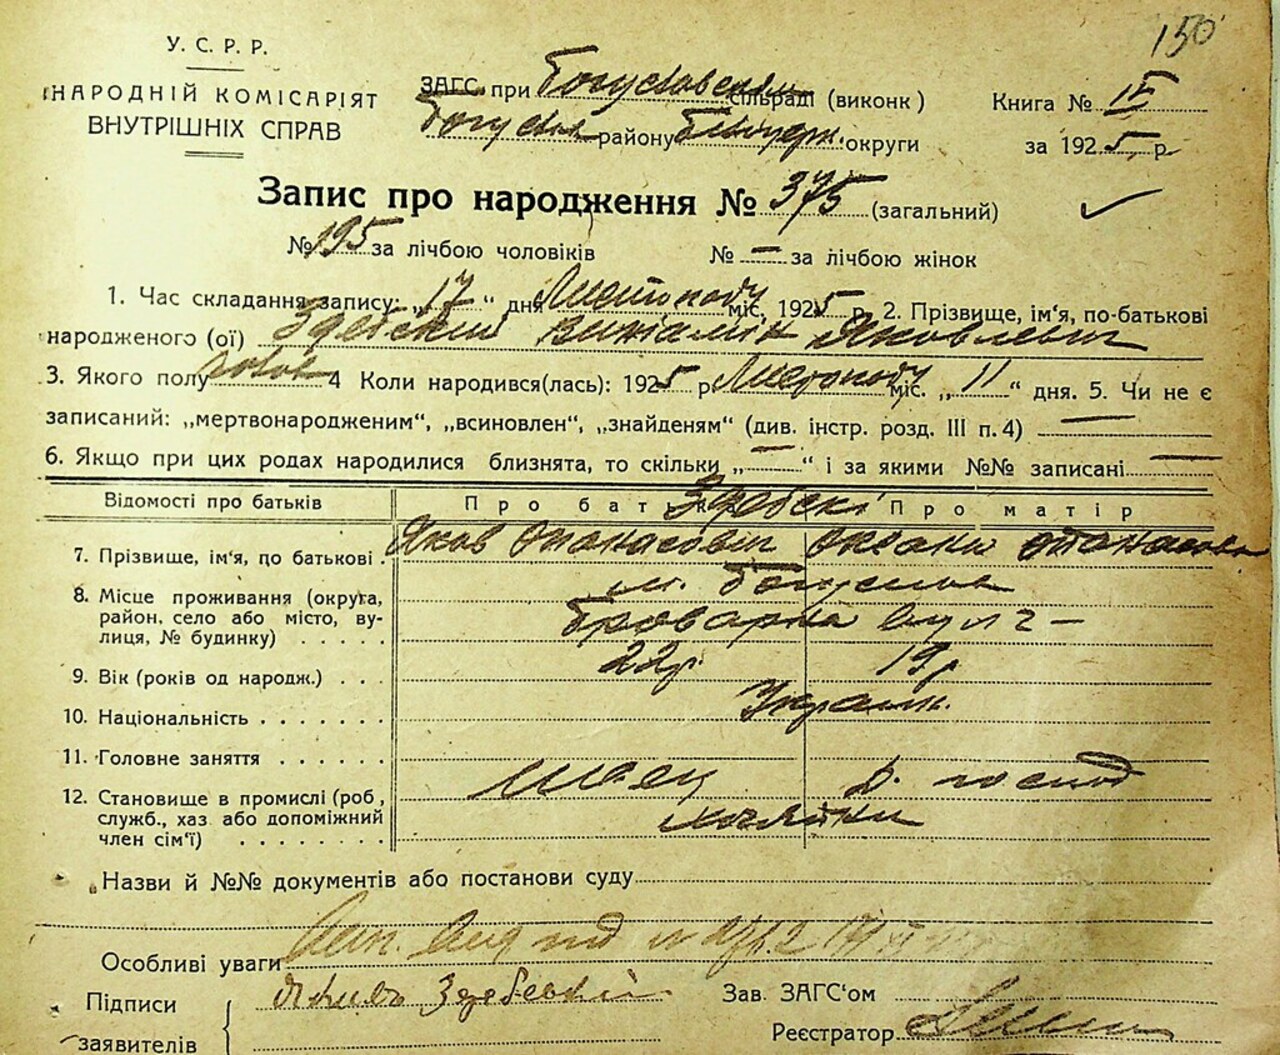 150
У. С. Р. Р.
НАРОДНІЙ КОМІСАРІЯТ
ВНУТРІШНІХ СПРАВ
ЗАГС при Богуславським сільраді (виконк)
Богуслав району Білоцерк. округи
Книга № ІІ
за 1925 р.
Запис про народження № 375 (загальний)
№ 195 за лічбою чоловіків № — за лічбою жінок
1. Час складання запису: „17“ дня Листопаду міс, 1925 р. 2. Прізвище, ім'я, по-батькові
народженого (ої) Здебский Виніамін Яковлевич
3. Якого полу чолов 4 Коли народився(лась): 1925 р Листопаду міс. „11“ дня. 5. Чи не є
записаний: „мертвонародженим“, „всиновлен“, „знайденям“ (див. інстр. розд. III п. 4) —
6. Якщо при цих родах народилися близнята, то скільки „—“ і за якими №№ записані —
Відомості про батьків Про бать Здебскі Про матір
7. Прізвище, ім'я, по батькові . Яков Опанасович Оксана Опанасова
8. Місце проживання (округа, район, село або місто, вулиця, № будинку) . . . . . м. Богуслав
Броварна вул 2 —
9. Вік (років од народж.) . . . 22р. 19р
10. Національність . . . . . . . Україн.
11. Головне заняття . . . . . . Швец д. господ
12. Становище в промислі (роб, служб., хаз або допоміжний член сім'ї) . . . . . . . . хазяйки
Назви й №№ документів або постанови суду
Особливі уваги
Підписи
заявителів
Яков Здебский
Зав. ЗАГС'ом
Реєстратор